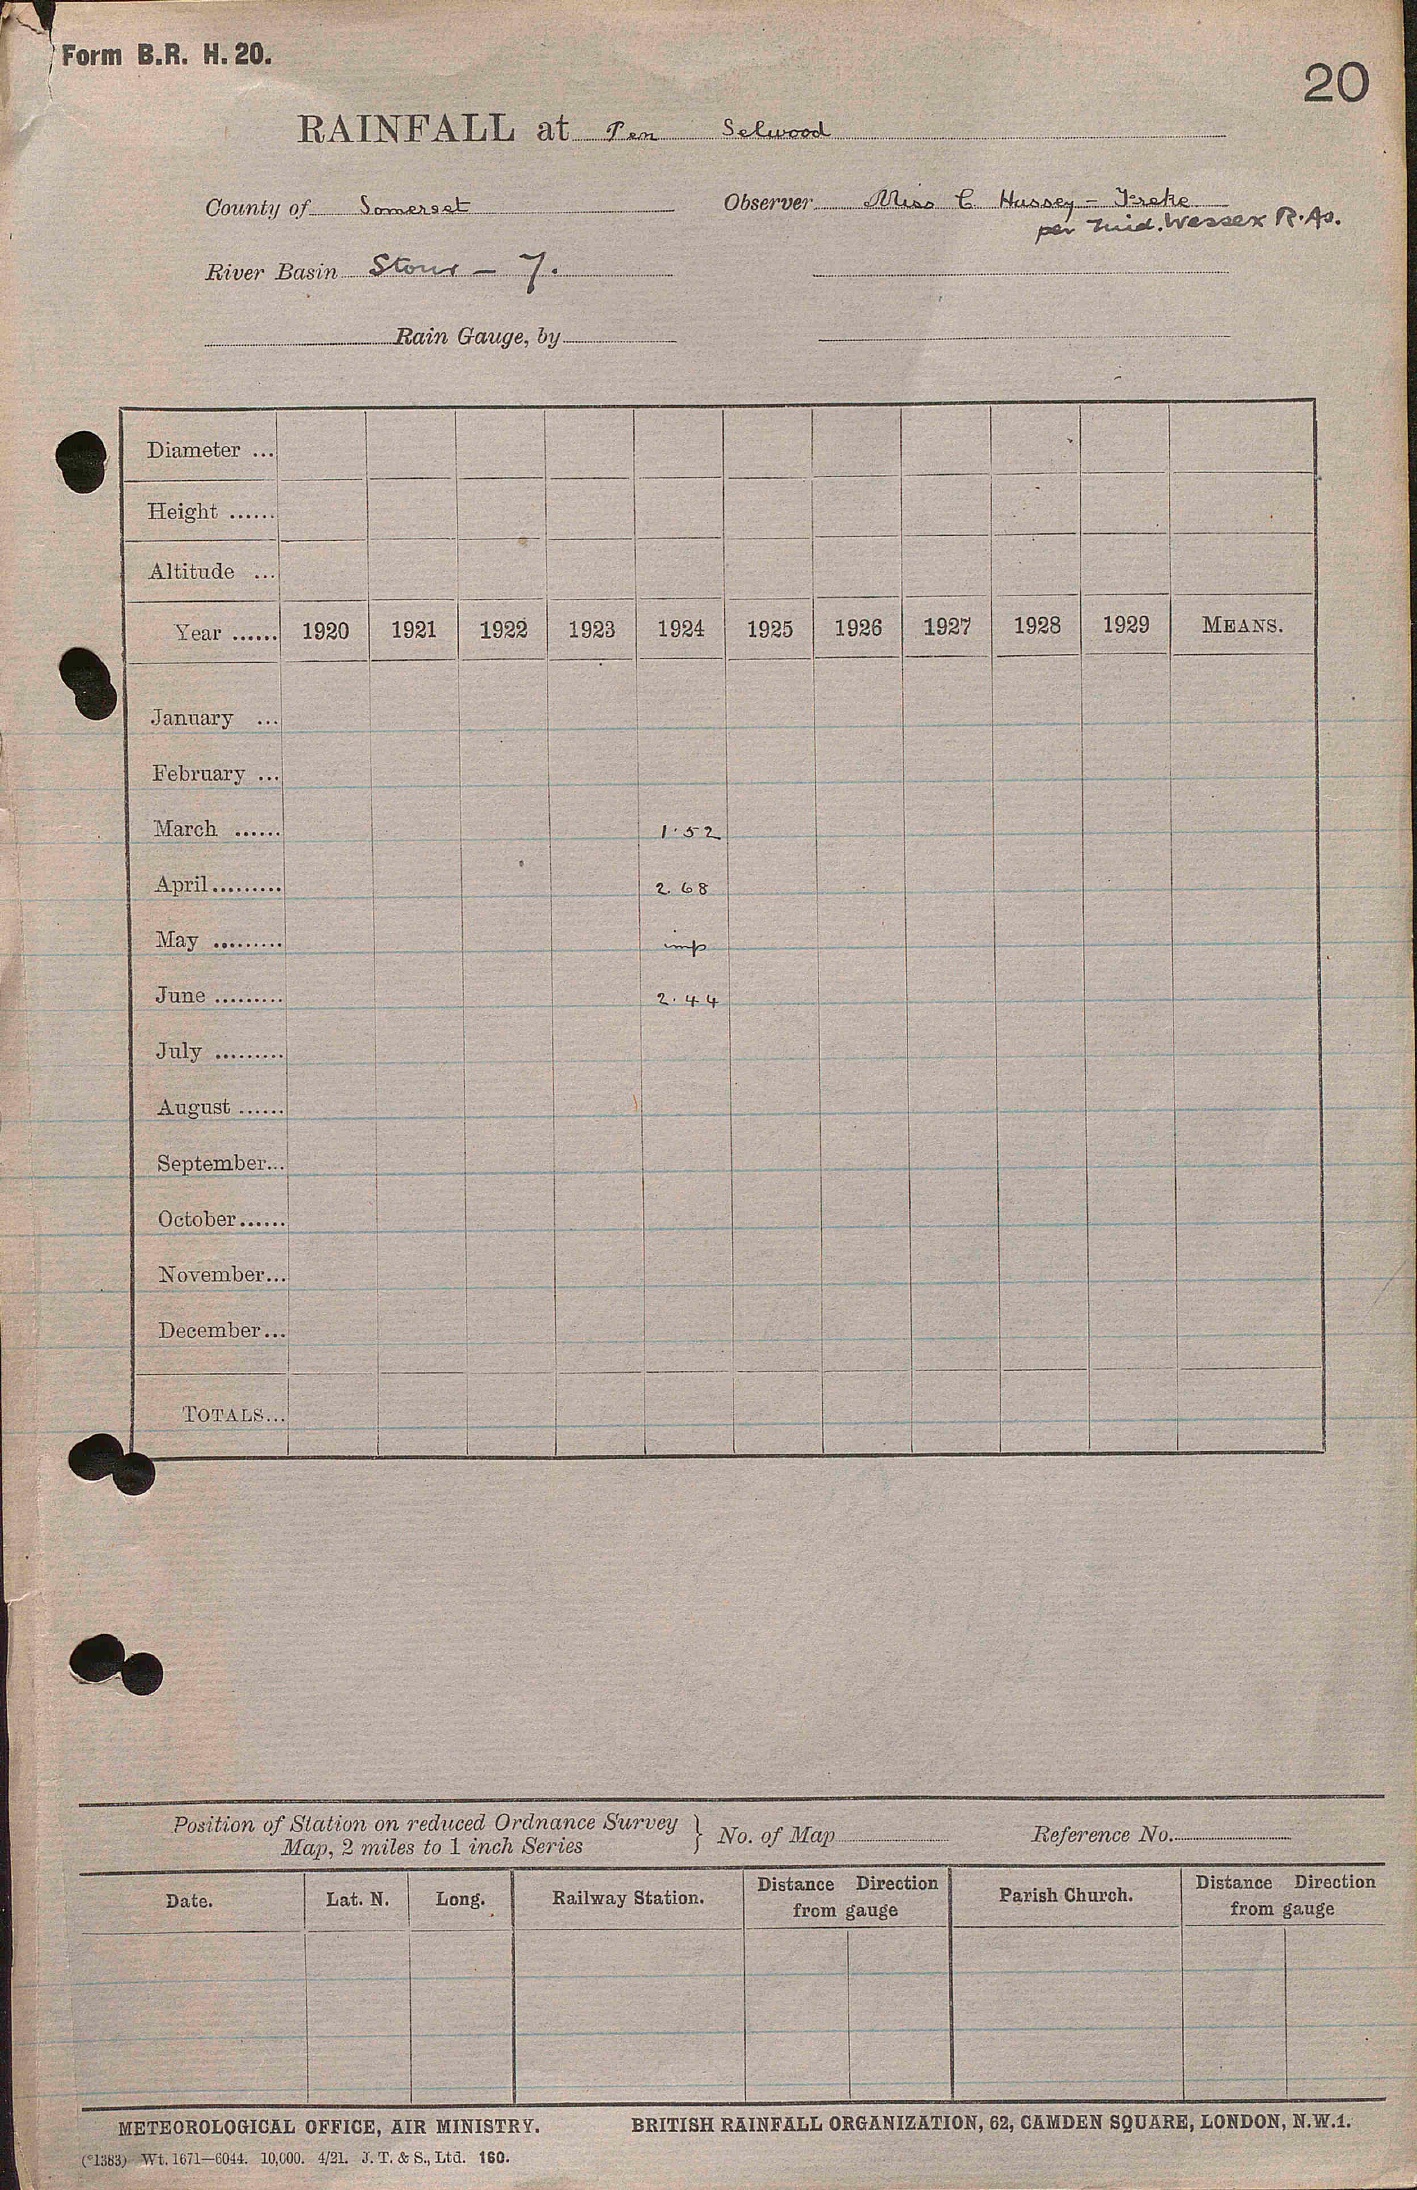 Form B.R. H. 20.
20
RAINFALL at Pen Selwood
County of Somerset Observer Miss C Hussey - Freke
per Mid. Wessex R. As.
River Basin Stour - 7.
Rain Gauge, by
Diameter ...
Height ......
Altitude ...
Year ...... 1920 1921 1922 1923 1924 1925 1926 1927 1928 1929 MEANS.
January ...
February ...
March ...... 1.52
April......... 2.68
May ......... imp
June ......... 2.44
July .........
August ......
September...
October......
November...
December...
TOTALS...
Position of Station on reduced Ordnance Survey
Map, 2 miles to 1 inch Series } No. of Map Reference No.
Date. Lat. N. Long. Railway Station. Distance Direction from gauge Parish Church. Distance Direction from gauge
METEOROLOGICAL OFFICE, AIR MINISTRY. BRITISH RAINFALL ORGANIZATION, 62, CAMDEN SQUARE, LONDON, N.W.1.
(*1383) Wt. 1671—6044. 10,000. 4/21. J. T. & S., Ltd. 160.